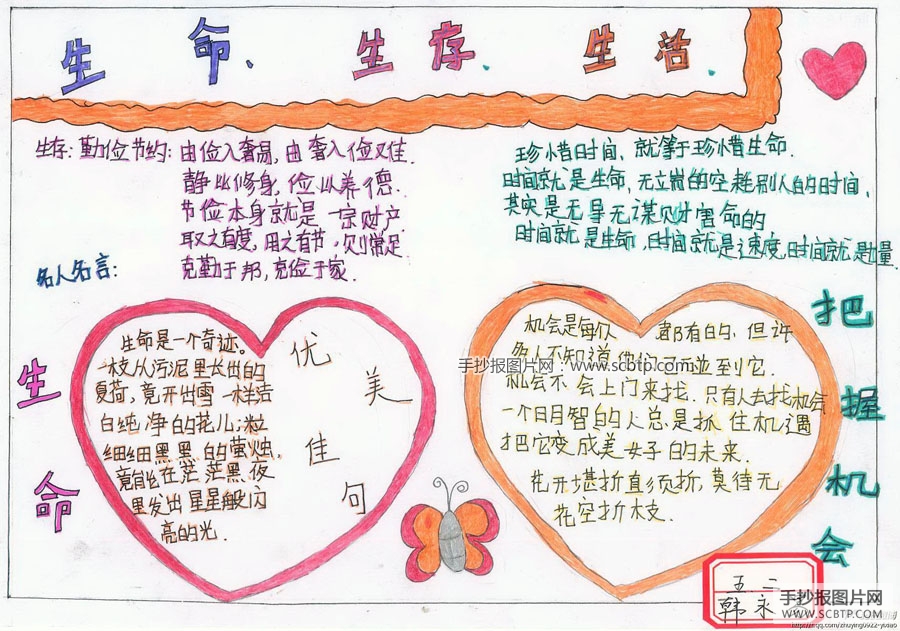 生命、生存、生活
生存: 勤俭节约: 由俭入奢易,由奢入俭又佳.
静以修身, 俭以养德.
节俭本身就是一宗财产
取之有度,用之有节,则常足
名人名言: 克勤于邦,克俭于家.
珍惜时间、就等于珍惜生命.
时间就是生命,无立耑的空耗别人的时间,
其实是无异无谋财害命的
时间就是生命,时间就是速度,时间就是力量.
生命
生命是一个奇迹。
一枝从污泥里长出的
夏荷,竟开出雪一样洁
白纯净的花儿;一粒
细细黑黑的萤烛,
竟能在茫茫黑夜
里发出星星般闪
亮的光.
优美佳句
机会是每人都有的,但许
多人不知道他们碰到它.
机会不会上门来找.只有人去找机会
一个日月智的人总是抓住机遇
把它变成美好的未来.
花开堪折直须折,莫待无
花空折枝.
把握机会
五.二
韩永
手抄报图片网:www.scbtp.com
手抄报图片网
WWW.SCBTP.COM